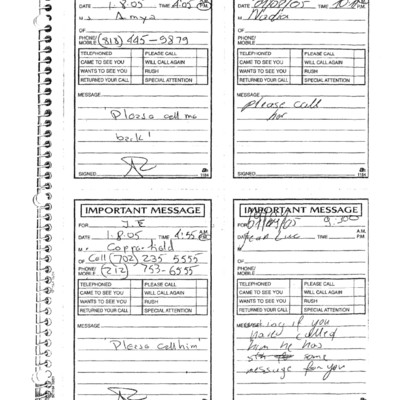 DATE 1.8.05 TIME 4:05 P.M.
M s Amya
OF
PHONE/
MOBILE (818) 445-9879
TELEPHONED PLEASE CALL
CAME TO SEE YOU WILL CALL AGAIN
WANTS TO SEE YOU RUSH
RETURNED YOUR CALL SPECIAL ATTENTION
MESSAGE
'Please call me
back'
SIGNED
1184
DATE TIME
M Nadia
OF
PHONE/
MOBILE
TELEPHONED PLEASE CALL
CAME TO SEE YOU WILL CALL AGAIN
WANTS TO SEE YOU RUSH
RETURNED YOUR CALL SPECIAL ATTENTION
MESSAGE
please call
her
SIGNED
1184
IMPORTANT MESSAGE
FOR J.E
DATE 1.8.05 TIME 4:55 A.M. P.M.
M r. Copperfield
OF Cell (702) 235 5555
PHONE/
MOBILE (212) 753-6555
TELEPHONED PLEASE CALL
CAME TO SEE YOU WILL CALL AGAIN
WANTS TO SEE YOU RUSH
RETURNED YOUR CALL SPECIAL ATTENTION
MESSAGE
'Please call him'
IMPORTANT MESSAGE
FOR
DATE Jean Luc TIME A.M. P.M.
M
OF
PHONE/
MOBILE
TELEPHONED PLEASE CALL
CAME TO SEE YOU WILL CALL AGAIN
WANTS TO SEE YOU RUSH
RETURNED YOUR CALL SPECIAL ATTENTION
MESSAGE if you
have called
him he has
some
message for you